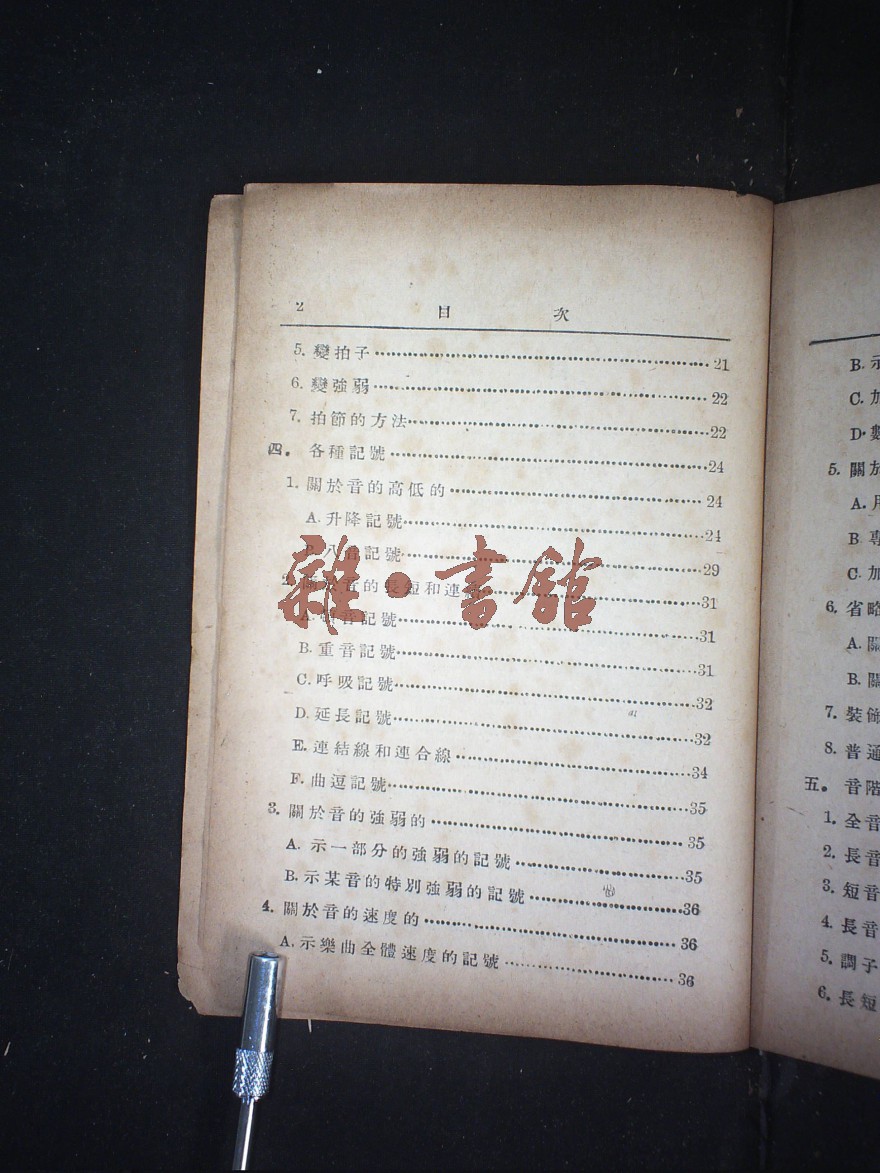 2 目 次
5. 變拍子 21
6. 變強弱 22
7. 拍節的方法 22
四. 各種記號 24
1. 關於音的高低的 24
A. 升降記號 24
八音記號 29
關於音的長短和連 31
音記號 31
B. 重音記號 31
C. 呼吸記號 32
D. 延長記號 32
E. 連結線和連合線 34
F. 曲逗記號 35
3. 關於音的強弱的 35
A. 示一部分的強弱的記號 35
B. 示某音的特別強弱的記號 36
4. 關於音的速度的 36
A. 示樂曲全體速度的記號 36
雜·書館
B. 示
C. 加
D. 數
5. 關於
A. 用
B. 專
C. 加
6. 省略
A. 關
B. 關
7. 裝飾
8. 普通
五. 音階
1. 全音
2. 長音
3. 短音
4. 長音
5. 調子
6. 長短